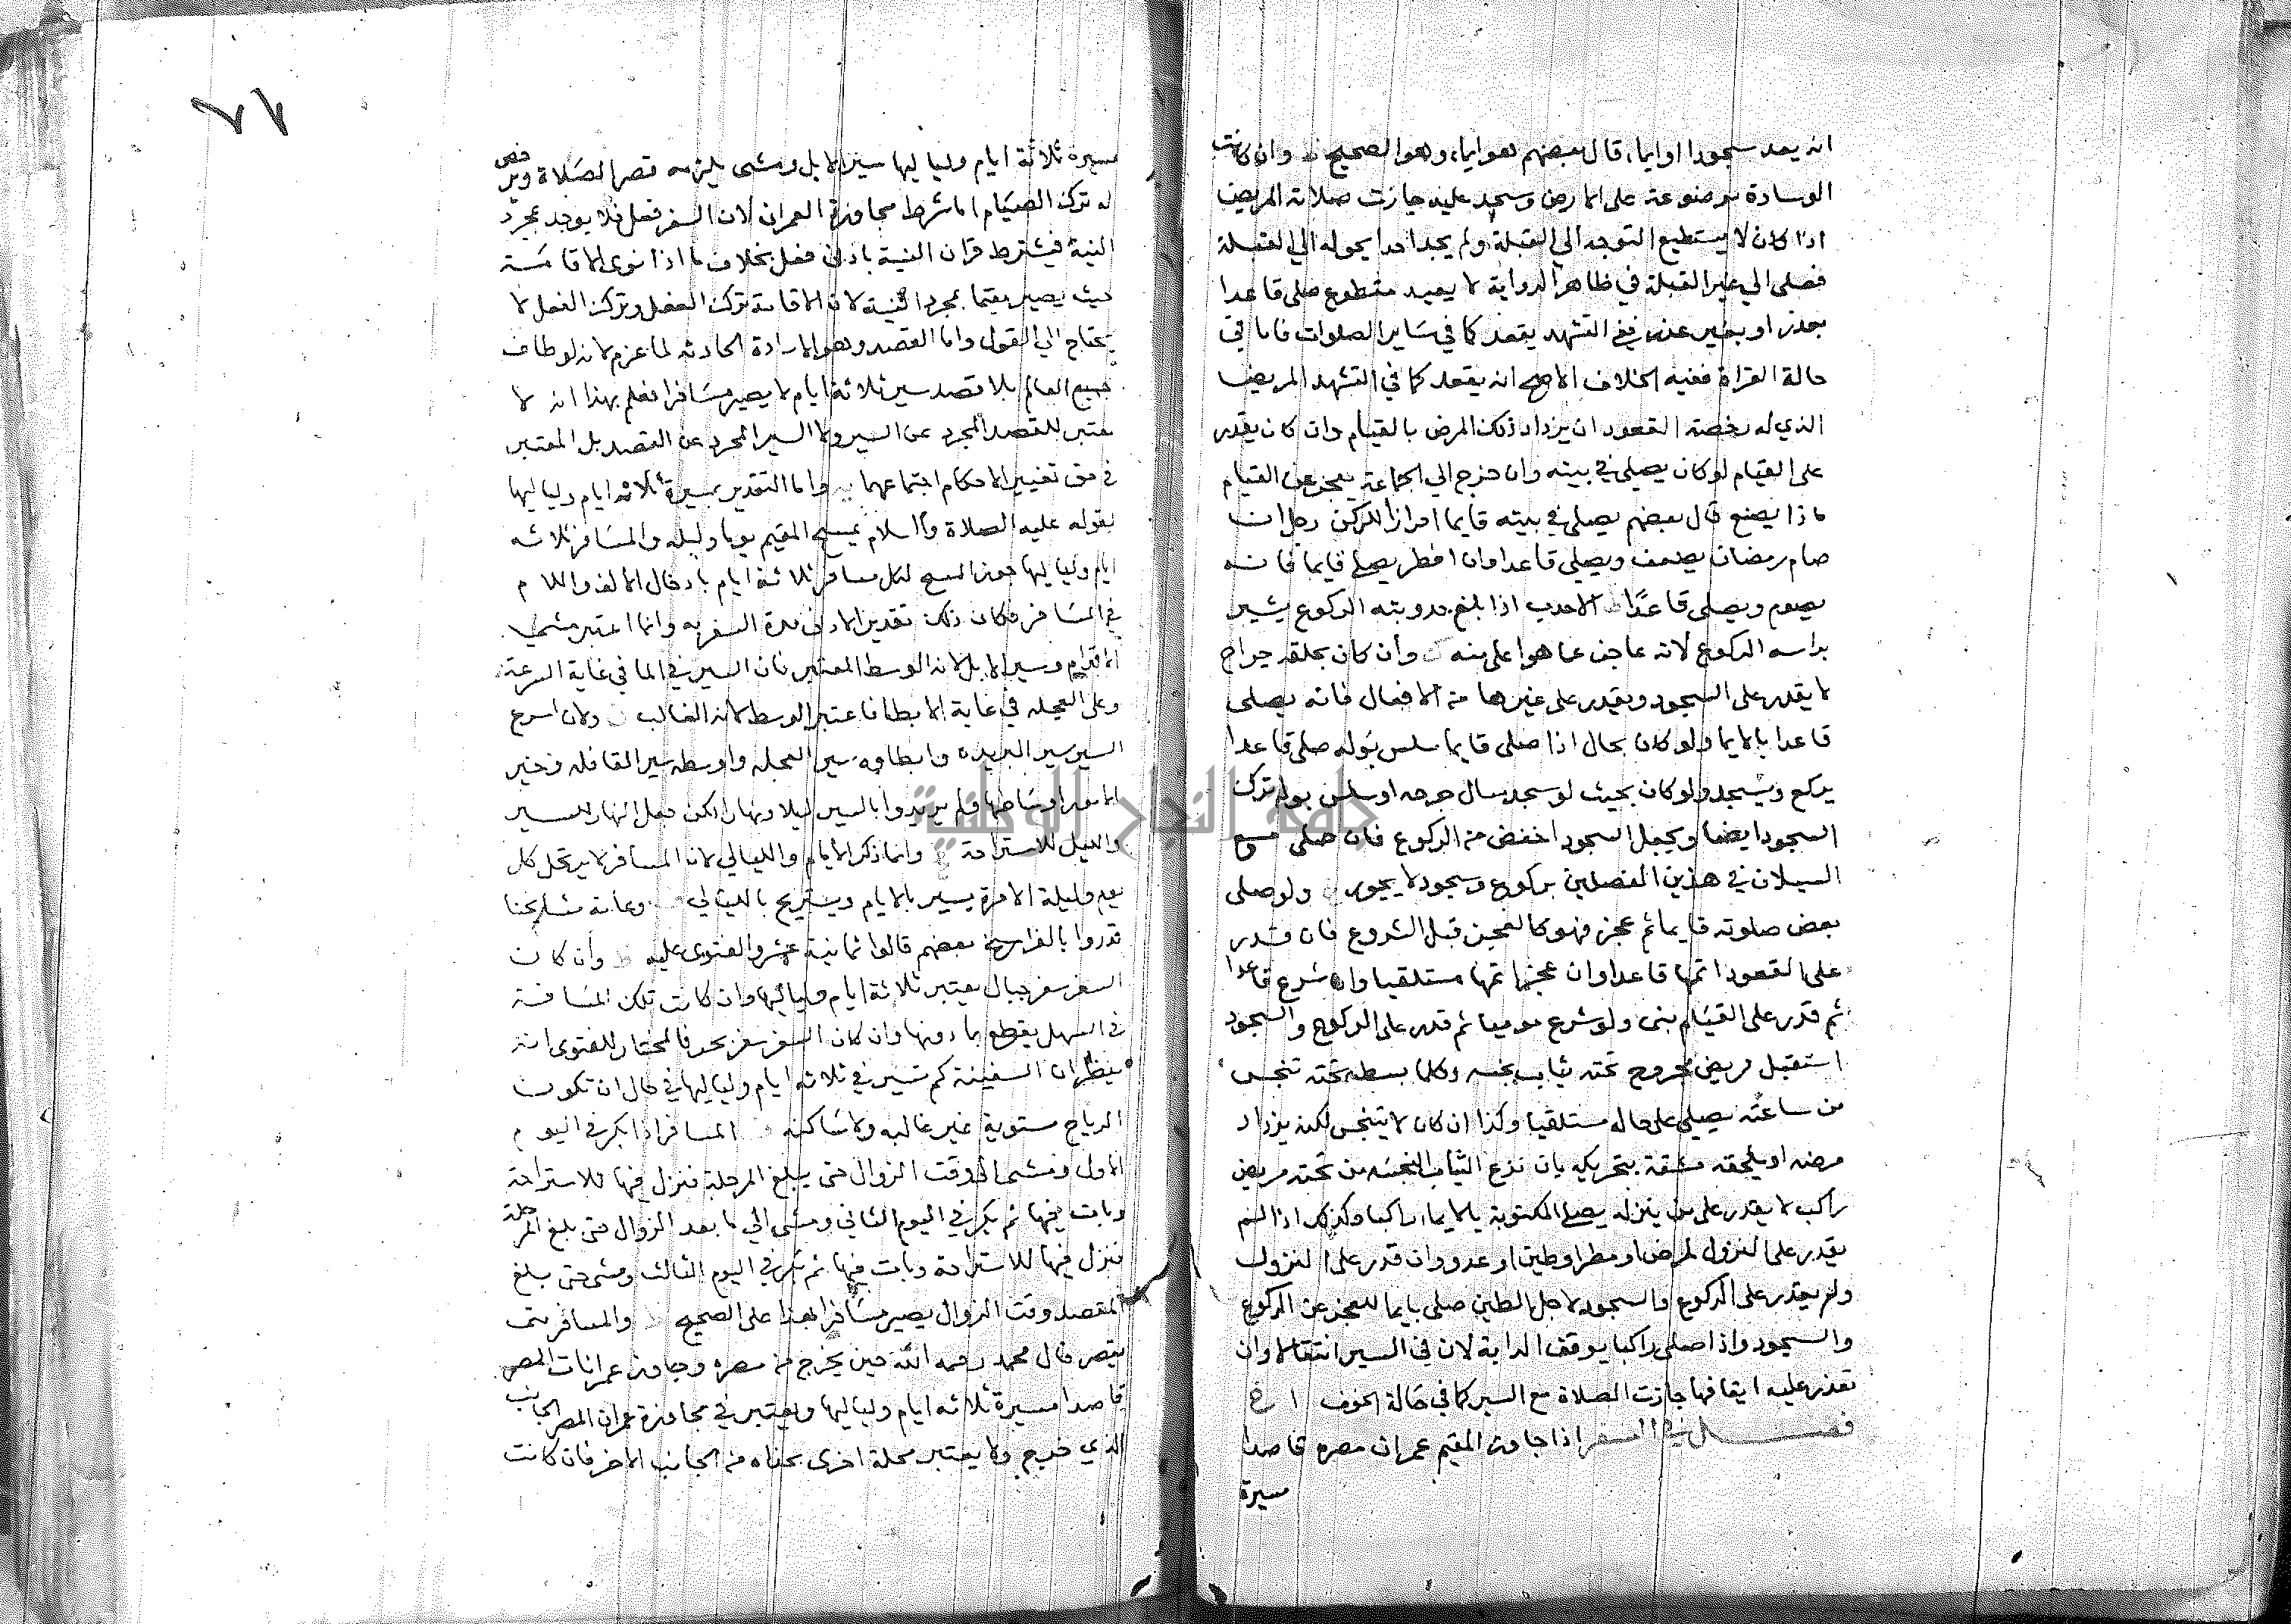 انه يعد سجودا او ايما، قال بعضهم هو ايما، وهو الصحيح وان كانت
الوسادة موضوعة على الارض وسجد عليه جازت صلاة المريض
اذا كان لا يستطيع التوجه الي القبلة ولم يجد احدا يحوله الي القبلة
فصلى الي غير القبلة في ظاهر الرواية لا يعيد متطوع صلى قاعدا
بعذر او بغير عذر ففي التشهد يقعد كما في ساير الصلوات فاما في
حالة القراة ففيه الخلاف الاصح انه يقعد كما في التشهد المريض
الذي له رخصة القعود ان يزداد ذلك المرض بالقيام وان كان يقدر
على القيام لو كان يصلي في بيته وان خرج الي الجماعة يعجز عن القيام
ماذا يصنع قال بعضهم يصلي في بيته قايما احرازا للركن رجل ان
صام رمضان يضعف ويصلي قاعدا وان افطر يصلي قايما فانه
يصوم ويصلي قاعدًا الاحدب اذا بلغ حدوبته الركوع يشير
براسه الركوع لانه عاجز عما هو اعلى منه وان كان بحلقه جراح
لا يقدر على السجود ويقدر على غيرها من الافعال فانه يصلى
قاعدا بالايما ولو كان بحال اذا صلى قايما سلس بوله صلى قاعدا
يركع ويسجد ولو كان بحيث لو سجد سال جرحه او سلس بوله ترك
السجود ايضا ويجعل السجود اخفض من الركوع فان صلى مع
السيلان في هذين الفصلين بركوع وسجود لا يجوز ولو صلى
بعض صلوته قايما ثم عجز فهو كالعجز قبل الشروع فان قدر
على القعود اتمها قاعدا وان عجز اتمها مستلقيا وان شرع قاعدا
ثم قدر على القيام بنى ولو شرع موميا ثم قدر على الركوع والسجود
استقبل مريض مجروح تحته ثياب نجسه وكلما بسط تحته تنجس
من ساعته يصلي على حاله مستلقيا وكذا ان كان لا يتنجس لكنه يزداد
مرضه او يلحقه مشقة بتحريكه بان نزع الثياب النجسه من تحته مريض
راكب لا يقدر على من ينزله يصلي المكتوبة بالايما راكبا وكذلك اذا لم
يقدر على النزول لمرض او مطر او طين او عدو وان قدر على النزول
ولم يقدر على الركوع والسجود لاجل الطين صلى بايما للعجز عن الركوع
والسجود واذا صلى راكبا يوقف الدابة لان في السير انتقالا وان
تعذر عليه ايقافها جازت الصلاة مع السير كما في حالة الخوف
فصل في السفر اذا جاوز المقيم عمران مصره قاصدا
مسيرة
٧٦
مسيرة ثلاثة ايام ولياليها سير الابل ومشى يلزمه قصر الصلاة
له ترك الصيام اما شرط مجاوزة العمران لان السفر فعل فلا يوجد بمجرد
النية فيشترط قران النية بادنى فعل بخلاف ما اذا نوى الاقامة
حيث يصير مقيما بمجرد النية لان الاقامة ترك الفعل وترك الفعل لا
يحتاج الي القول واما القصد وهو الارادة الحادثه لما عزم لانه لو طاف
جميع العالم بلا قصد سير ثلاثة ايام لا يصير مسافرا فعلم بهذا انه لا
معتبر للقصد المجرد عن السير ولا السير المجرد عن القصد بل المعتبر
في حق تغيير الاحكام اجتماعهما واما التقدير بمسيرة ثلاثه ايام ولياليها
لقوله عليه الصلاة والسلام يمسح المقيم يوما وليله والمسافر ثلاثه
ايام ولياليها جوز المسح لكل مسافر ثلاثة ايام بادخال الالف واللام
في المسافر فكان ذلك تقديرا لادنى مدة السفر به وانما اعتبر مشي
الاقدام وسير الابل لانه الوسط المعتبر فان السير في الما في غاية السرعة
وعلى العجله في غاية الابطا فاعتبر الوسط لانه الغالب ولان اسرع
السير سير البريد وابطاوه سير العجله واوسطه سير القافله وخير
الامور اوساطها ولم يريدوا بالسير ليلا ونهارا لكن جعل النهار للسير
والليل للاستراحة وانما ذكر الايام والليالي لان المسافر لا يرتحل كل
يوم وليلة الا مرة يسير بالايام ويستريح بالليالي وعامة مشايخنا
قدروا بالفراسخ بعضهم قالوا ثمانية عشر والفتوى عليه وان كان
السفر سفر جبال يعتبر ثلاثة ايام ولياليها وان كانت تلك المسافة
في السهل يقطع بما دونها وان كان السفر سفر بحر فالمختار للفتوى انه
ينظر ان السفينة كم تسير في ثلاثه ايام ولياليها في حال ان تكون
الرياح مستوية غير غالبه ولا ساكنه المسافر اذا بكر في اليوم
الاول ومشى الى وقت الزوال حتى يبلغ المرحلة فنزل فيها للاستراحة
وبات فيها ثم بكر في اليوم الثاني ومشى الي ما بعد الزوال حتى بلغ المرحلة
فنزل فيها للاستراحة وبات فيها ثم بكر في اليوم الثالث ومشى حتى بلغ
المقصد وقت الزوال يصير مسافرا بهذا على الصحيح والمسافر متى
يقصر قال محمد رحمه الله حين يخرج من مصره وجاوز عمرانات المصر
قاصدا مسيرة ثلاثه ايام ولياليها ويعتبر في مجاوزة عمران المصر الجانب
الذي خرج ولا يعتبر محلة اخرى بحذاه من الجانب الاخر فان كانت
جامعة النجاح الوطنية